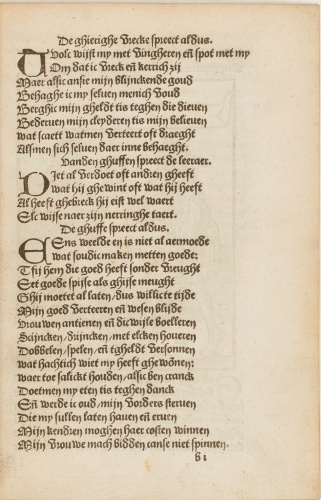 De ghierighe vrecke spreect aldus.
Tvolc wijst my met vingheren eñ spot met my
Om dat ic vreck eñ kerrich zij
Maer alsic ansie mijn blijnckende goud
Behaghe ic my seluen menich voud
Berghic mijn gheldt tis teghen die dieuen
Bederuen mijn cleyderen tis mijn belieuen
wat scaett watmen verteert oft draeght
Alsmen sich seluen daer inne behaeght.
Vanden ghuffen spreect de leeraer.
Niet al verdoet oft andien gheeft
wat hij ghewint oft wat hij heeft
Al heeft ghebreck hij eist wel waert
Elc wijse naer zijn netringhe taert.
De ghuffe spreect aldus.
Eens weelde en is niet al aermoede
wat soudic maken metten goede:
Tfij hem die goed heeft sonder vreught
Het goede spijse als ghijse meught
Ghij moetet al laten/dus willicte tijde
Mijn goed verteeren eñ wesen blijde
Vrouwen antienen eñ dicwijle boelleren
Scijncken/duijncken/met elcken houeren
Dobbelen/spelen/eñ tgheldt versonnen
wat hachtich wiet my heeft ghewōnen:
waer toe salickt houden/alsic ben cranck
Doetmen my eten tis teghen danck
Eñ werde ic oud/mijn vorders steruen
Die my sullen laten hauen eñ eruen
Mijn kendren moghen haer costen winnen
Mijn vrouwe mach bidden canse niet spinnen.
b i